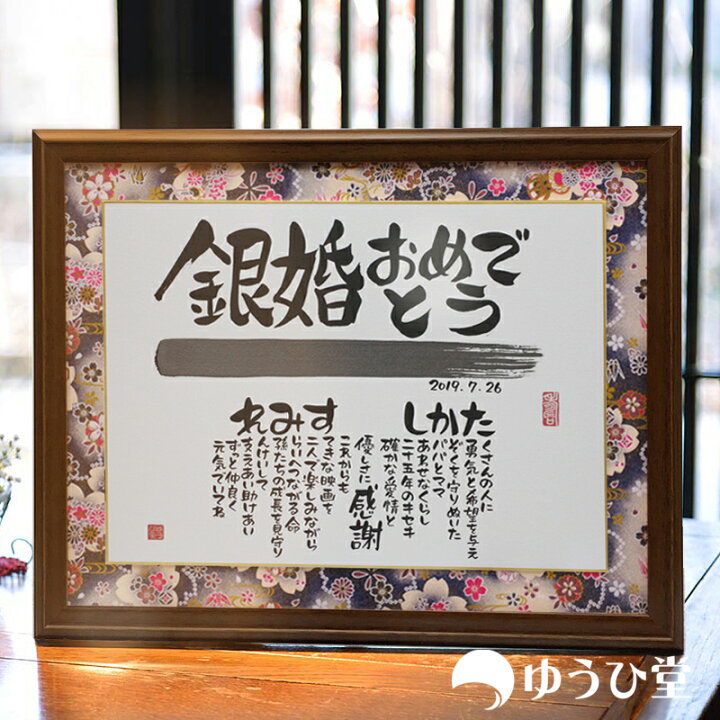 銀婚おめでとう
2019.7.26
たくさんの人に
勇気と希望を与え
かぞくを守りぬいた
パパとママ
しあわせなくらし
二十五年のキセキ
確かな愛情と
優しさに感謝
これからも
すてきな映画を
二人で楽しみながら
みらいへつながる命
孫たちの成長を見守り
れんけいして
支えあい助けあい
ずっと仲良く
元気でいてね
ゆうひ堂